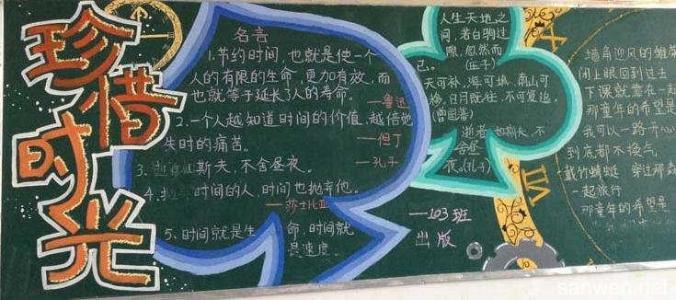 珍惜时光
名言
1.节约时间,也就是使一个
人的有限的生命,更加有效,而
也就等于延长了人的寿命。
—鲁迅
2.一个人越知道时间的价值,越倍觉
失时的痛苦。
—但丁
3.
斯夫,不舍昼夜。
—孔子
4.
时间的人,时间也抛弃他。
—莎士比亚
5、时间就是生命,时间就
是速度。
人生天地之
间,若白驹过
隙,忽然而
已。
(庄子)
天可补,海可填,南山可
移,日月既往,不可复追。
(曾国藩)
逝者如斯夫,不
舍昼
夜。(孔子)
—103班
出版
墙角迎风的雏菊
闭上眼回到过去
下课就靠在一起
那童年的希望是
我可以一路开
到底都不换气
戴竹蜻蜓 穿过那森
一起旅行
那童年的希望是
VII
sanwen.net